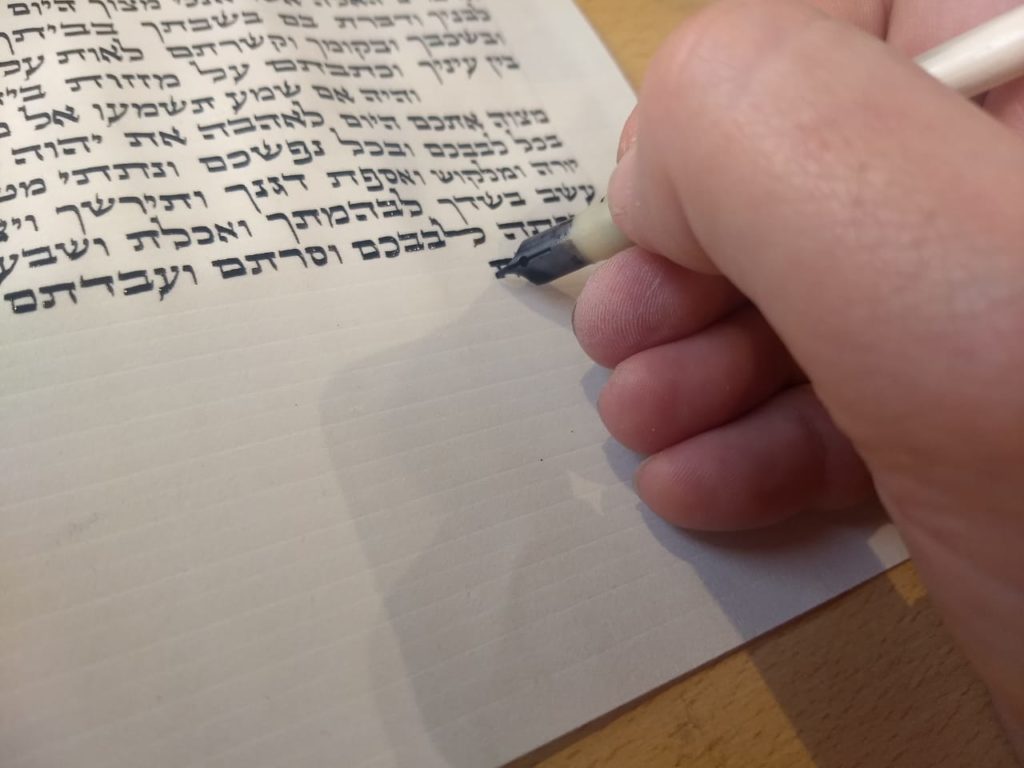 האלה אשר אנכי מצוך היום
לבניך ודברת בם בשבתך בביתך
ובשכבך ובקומך וקשרתם לאות על
בין עיניך וכתבתם על מזזות
והיה אם שמע תשמעו אל
מצוה אתכם היום לאהבה את יהוה
בכל לבבכם ובכל נפשכם ונתתי
יורה ומלקוש ואספת דגנך ותירשך
עשב בשדך לבהמתך ואכלת
לבבכם וסרתם ועבדתם